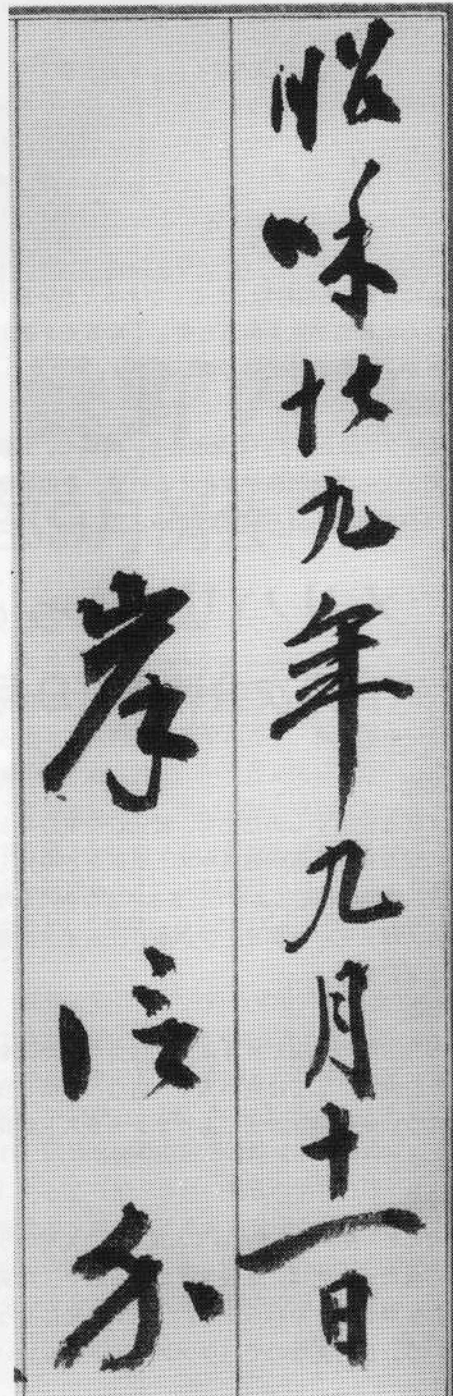 昭和卅九年九月十一日
岸信介